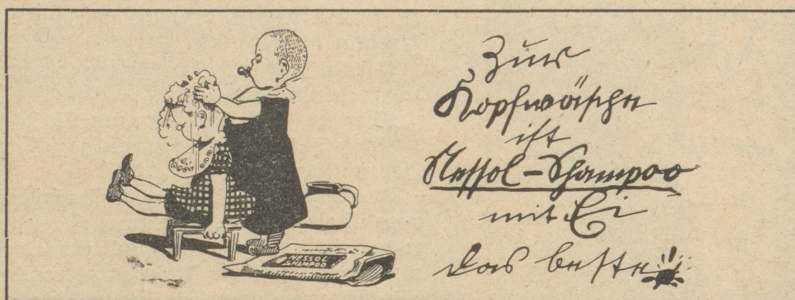 Zur
Kopfwäsche
ist
Nessol-Shampoo
mit Ei
das beste!
NESSOL
SHAMPOO